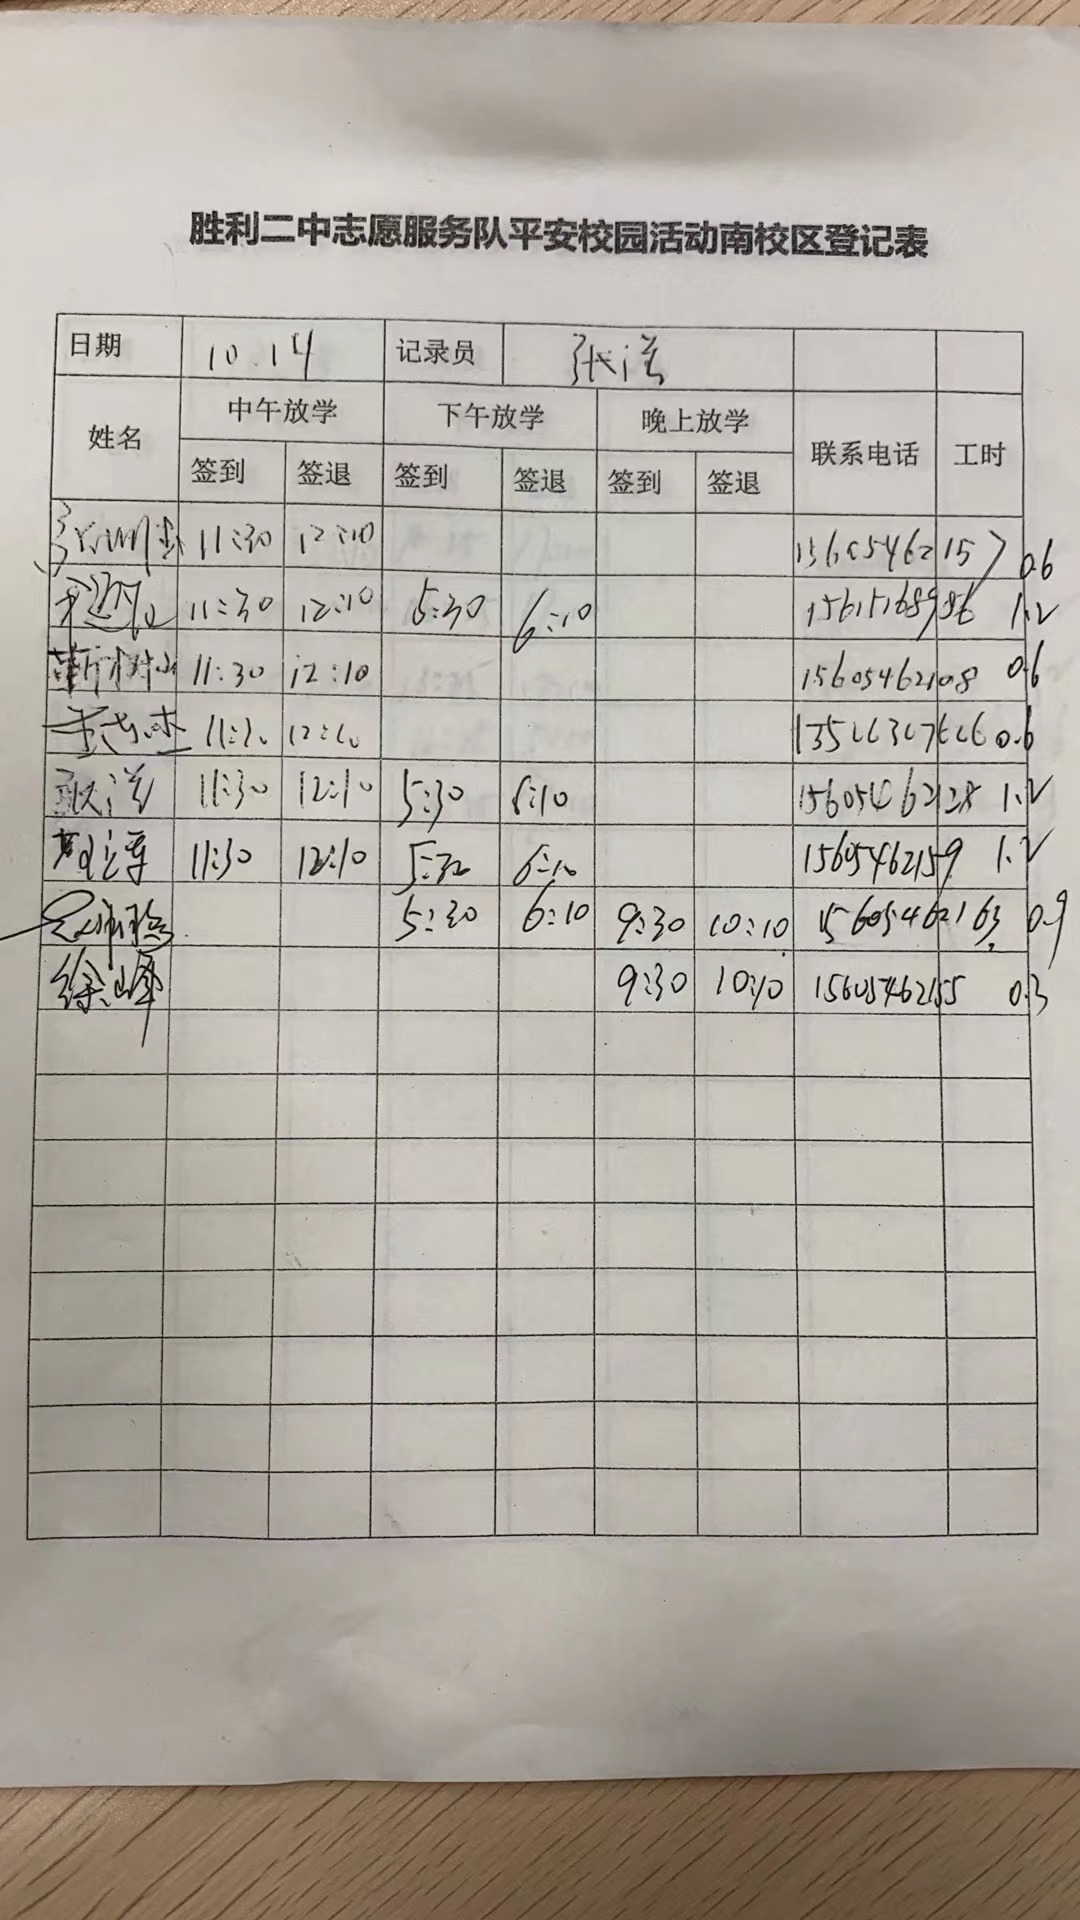 胜利二中志愿服务队平安校园活动南校区登记表
日期 10.14 记录员 张洋
姓名 中午放学 下午放学 晚上放学 联系电话 工时
签到 签退 签到 签退 签到 签退
11:30 12:10 0.6
11:30 12:10 5:30 6:10 1.2
靳树山 11:30 12:10 15605462108 0.6
0.6
张洋 11:30 12:10 5:30 6:10 15605462128 1.2
11:30 12:10 5:30 6:10 15605462159 1.2
5:30 6:10 9:30 10:10 15605462163 0.9
徐峰 9:30 10:10 15605462155 0.3